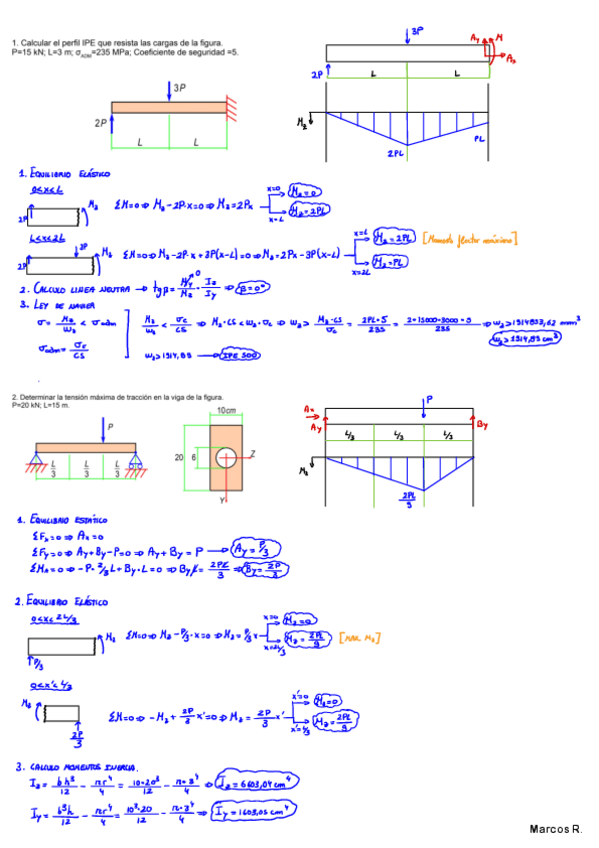 1. Calcular el perfil IPE que resista las cargas de la figura.
P=15 kN; L=3 m; σADM=235 MPa; Coeficiente de seguridad =5.
3P
2P
L L
3P
Ay M
Ax
2P
L L
Mz
2PL
PL
1. EQUILIBRIO ELÁSTICO
0<x<L
2P
Mz
ΣM=0 ⇒ Mz-2P·x=0 ⇒ Mz=2Px
x=0 Mz=0
x=L Mz=2PL
L<x<2L
3P
2P
Mz
ΣM=0 ⇒ Mz-2P·x+3P(x-L)=0 ⇒ Mz=2Px-3P(x-L)
x=L Mz=2PL [Momento flector máximo]
x=2L Mz=PL
2. CALCULO LINEA NEUTRA → tgβ = My/Mz · Iz/Iy ⇒ β=0°
3. LEY DE NAVIER
σ = Mz/Wz < σadm
σadm = σe/CS
Mz/Wz < σe/CS ⇒ Mz·CS < Wz·σe ⇒ Wz > Mz·CS/σe = 2PL·5/235 = 2·15000·3000·5/235 ⇒ Wz > 1914893,62 mm³
Wz > 1914,89 cm³
Wz > 1914,89 → IPE 500
2. Determinar la tensión máxima de tracción en la viga de la figura.
P=20 kN; L=15 m.
P
L/3 L/3 L/3
10cm
20 6
Z
Y
P
Ax
Ay
By
L/3 L/3 L/3
Mz
2PL/9
1. EQUILIBRIO ESTÁTICO
ΣFx=0 ⇒ Ax=0
ΣFy=0 ⇒ Ay+By-P=0 ⇒ Ay+By=P → Ay=P/3
ΣMA=0 ⇒ -P·2/3L+By·L=0 ⇒ ByL=2PL/3 ⇒ By=2P/3
2. EQUILIBRIO ELÁSTICO
0<x<2L/3
Mz
P/3
ΣM=0 ⇒ Mz-P/3·x=0 ⇒ Mz=P/3x
x=0 Mz=0
x=2L/3 Mz=2PL/9 [MAX. Mz]
0<x'<L/3
Mz
2P/3
ΣM=0 ⇒ -Mz+2P/3x'=0 ⇒ Mz=2P/3x'
x'=0 Mz=0
x'=L/3 Mz=2PL/9
3. CALCULO MOMENTOS INERCIA.
Iz = bh³/12 - πr⁴/4 = 10·20³/12 - π·3⁴/4 ⇒ Iz=6603,04cm⁴
Iy = b³h/12 - πr⁴/4 = 10³·20/12 - π·3⁴/4 ⇒ Iy=1603,05cm⁴
Marcos R.